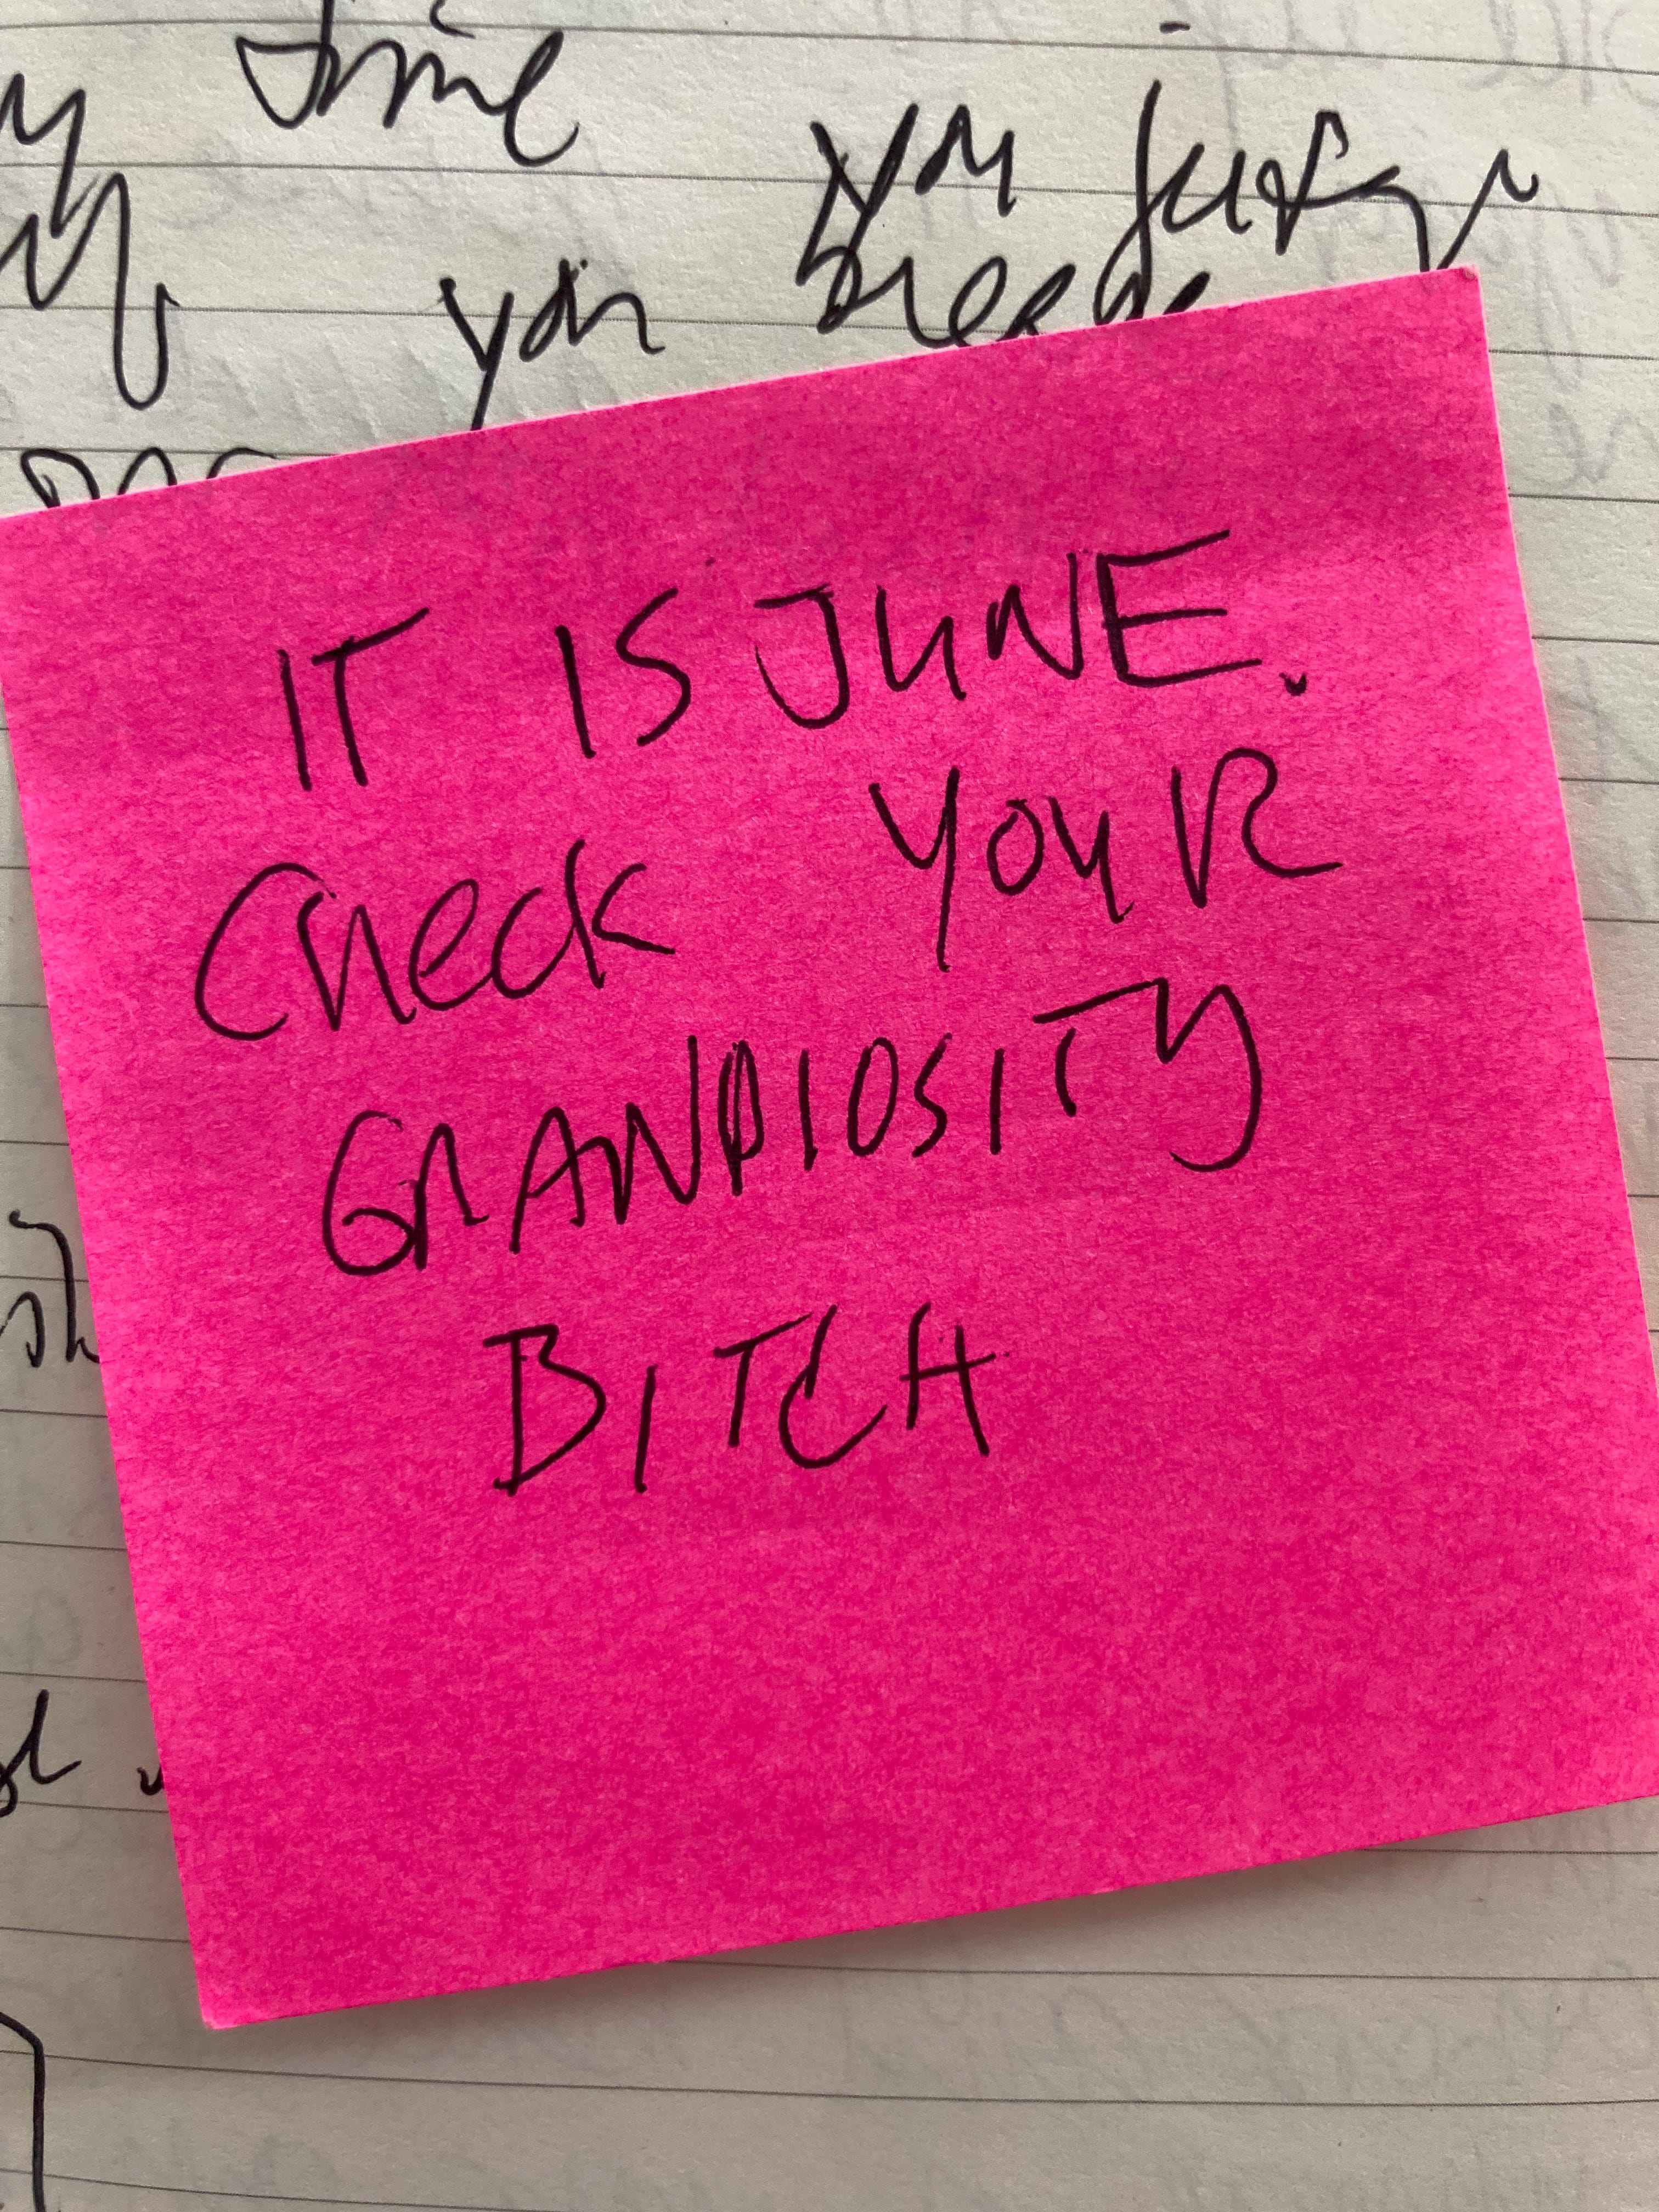 time
you judge
you
IT IS JUNE.
Check YOUR
GRANDIOSITY
BITCH